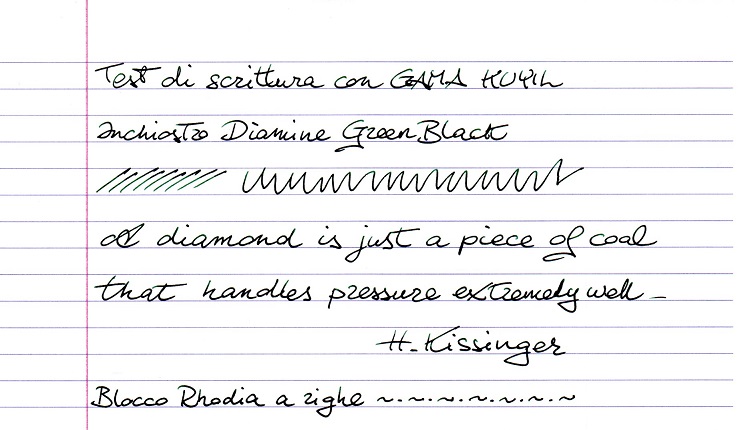 Test di scrittura con GAMA KUYIL
Inchiostro Diamine Green Black
A diamond is just a piece of coal
that handles pressure extremely well -
H. Kissinger
Blocco Rhodia a righe ~.~.~.~.~.~.~